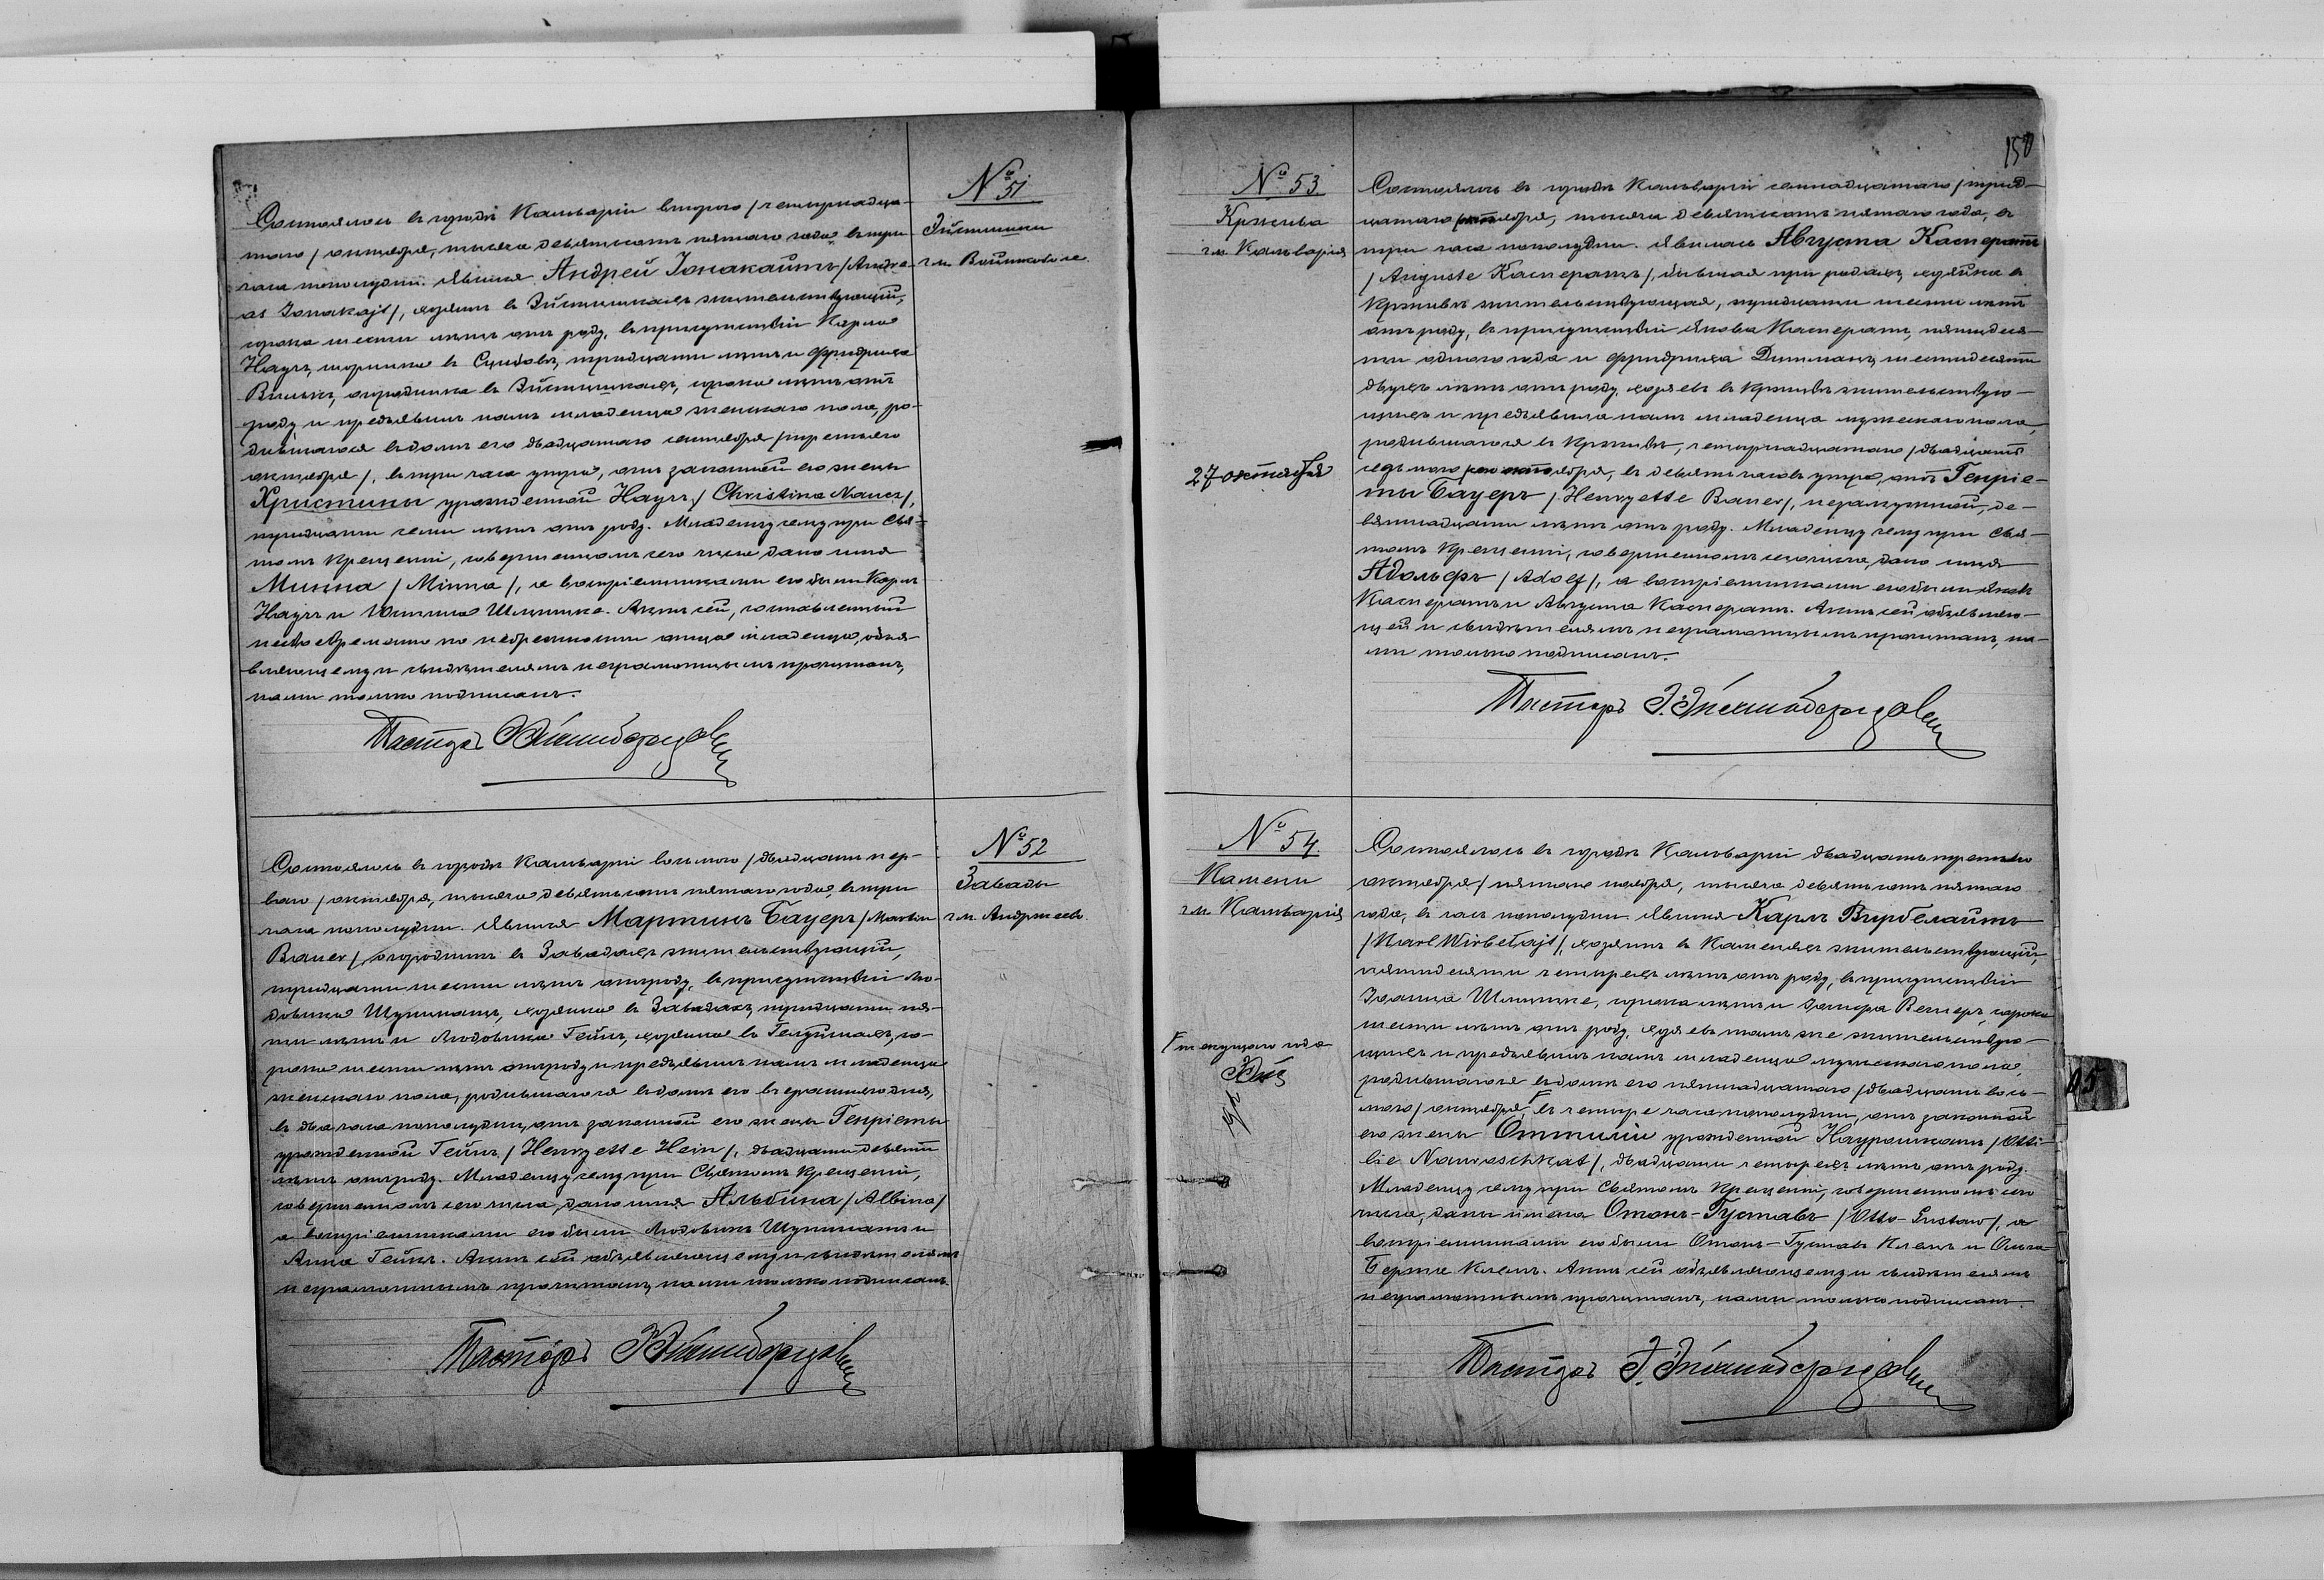 № 51
Эйстишки
гм. Войтковоле.
Состоялось въ городѣ Кальваріи второго / четырнадца-
таго / октября, тысяча девятьсотъ пятаго года, въ три
часа пополудни. Явился Андрей Іонакайтъ / Andre-
as Jonakajt /, хозяинъ въ жительствующій,
сорока шести лѣтъ отъ роду, въ присутствіи Карла
Науръ, въ тридцати лѣтъ и Фридриха
въ сорока лѣтъ отъ
роду и предъявилъ намъ младенца женскаго пола, ро-
дившагося въ домѣ его двадцатаго сентября / третьяго
октября /, въ три часа утра, отъ законной его жены
Христины урожденной Науръ / Christina Nauer /,
тридцати семи лѣтъ отъ роду. Младенцу сему при Свя-
томъ Крещеніи, совершенномъ сего числа дано имя
Минна / Minna /, а воспріемниками его были Карлъ
Науръ и Актъ сей, составленный
несвоевременно по небрежности отца младенца, объя-
вляющему и свидѣтелямъ неграмотнымъ прочитанъ,
нами только подписанъ.
Пасторъ
№ 52
Завады
гм. Андржеево.
Состоялось въ городѣ Кальваріи восьмого / двадцать пер-
ваго / октября, тысяча девятьсотъ пятаго года, въ три
часа пополудни. Явился Мартинъ Бауеръ / Martin
Bauer /, огородникъ въ Завадахъ жительствующій,
тридцати шести лѣтъ отъ роду, въ присутствіи Лю-
довика хозяина въ Завадахъ, тридцати пя-
ти лѣтъ и Людовика Гейнъ, хозяина въ со-
рока шести лѣтъ отъ роду и предъявилъ намъ младенца
женскаго пола, родившагося въ домѣ его вчерашняго дня,
въ два часа пополудни, отъ законной его жены Генріеты
урожденной Гейнъ / Henryette Hein /, двадцати девяти
лѣтъ отъ роду. Младенцу сему при Святомъ Крещеніи,
совершенномъ сего числа, дано имя Альбина / Albina /
а воспріемниками его были Людовикъ и
Анна Гейнъ. Актъ сей объявляющему и свидѣтелямъ
неграмотнымъ прочитанъ, нами только подписанъ.
Пасторъ
150
№ 53
Кржива
гм. Кальварія
27 октября
Состоялось въ городѣ Кальваріи семнадцатаго / трид-
цатаго октября, тысяча девятьсотъ пятаго года, въ
три часа пополудни. Явилась Августа Касператъ
/ Auguste Касператъ /, бывшая при родахъ, хозяйка въ
Крживѣ жительствующая, тридцати шести лѣтъ
отъ роду, въ присутствіи Якова Касператъ, пятидеся-
ти одного года и Фридриха шестидесяти
двухъ лѣтъ отъ роду, хозяевъ въ Крживѣ жительствую-
щихъ и предъявила намъ младенца мужескаго пола,
родившагося въ Крживѣ, четырнадцатаго / двадцать
седьмого октября, въ девять часовъ утра, отъ Генріе-
ты Бауеръ / Henryette Bauer /, незамужней, де-
вятнадцати лѣтъ отъ роду. Младенцу сему при Свя-
томъ Крещеніи, совершенномъ сего числа, дано имя
Адольфъ / Adolf /, а воспріемниками его были Яковъ
Касператъ и Августа Касператъ. Актъ сей объявляю-
щей и свидѣтелямъ неграмотнымъ прочитанъ, на-
ми только подписанъ.
Пасторъ
№ 54
Камени
гм. Кальварія
текущаго года
Состоялось въ городѣ Кальваріи двадцать третьяго
октября / пятаго ноября, тысяча девятьсотъ пятаго
года, въ часъ пополудни. Явился Карлъ Вирбелайтъ
/ Karl Wirbelajt /, хозяинъ въ Каменяхъ жительствующій,
пятидесяти четырехъ лѣтъ отъ роду, въ присутствіи
Іоанна сорока лѣтъ и сорока
шести лѣтъ отъ роду, хозяевъ тамъ же жительствую-
щихъ и предъявилъ намъ младенца мужескаго пола,
родившагося въ домѣ его пятнадцатаго / двадцать вось-
мого / октября, въ четыре часа пополудни, отъ законной
его жены Оттиліи урожденной Наурошкатъ / Otti-
lie Nauroschkat /, двадцати четырехъ лѣтъ отъ роду.
Младенцу сему при Святомъ Крещеніи, совершенномъ сего
числа, даны имена Отонъ-Густавъ / Otto-Gustaw /, а
воспріемниками его были Отонъ-Густавъ Клемъ и Ольга-
Берта Клемъ. Актъ сей объявляющему и свидѣтелямъ
неграмотнымъ прочитанъ, нами только подписанъ.
Пасторъ